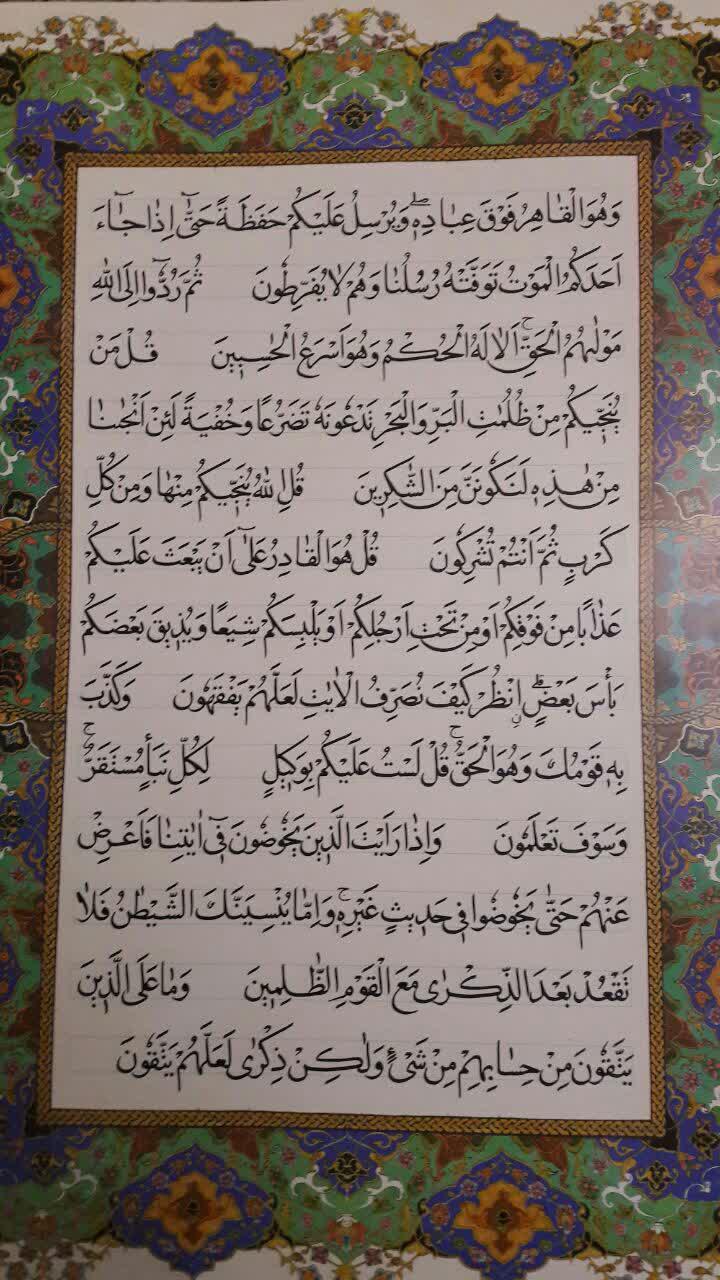 وَهُوَ الْقَاهِرُ فَوْقَ عِبَادِهِ ۖ وَيُرْسِلُ عَلَيْكُمْ حَفَظَةً حَتّٰٓى اِذَا جَآءَ
اَحَدَكُمُ الْمَوْتُ تَوَفَّتْهُ رُسُلُنَا وَهُمْ لَا يُفَرِّطُونَ ثُمَّ رُدُّٓوا اِلَى اللّٰهِ
مَوْلٰيهُمُ الْحَقِّ ۚ اَلَا لَهُ الْحُكْمُ وَهُوَ اَسْرَعُ الْحَاسِبِينَ قُلْ مَنْ
يُنَجِّيكُمْ مِنْ ظُلُمَاتِ الْبَرِّ وَالْبَحْرِ تَدْعُونَهُ تَضَرُّعًا وَخُفْيَةً لَئِنْ اَنْجٰنَا
مِنْ هٰذِهِ لَنَكُونَنَّ مِنَ الشَّاكِرِينَ قُلِ اللّٰهُ يُنَجِّيكُمْ مِنْهَا وَمِنْ كُلِّ
كَرْبٍ ثُمَّ اَنْتُمْ تُشْرِكُونَ قُلْ هُوَ الْقَادِرُ عَلٰٓى اَنْ يَبْعَثَ عَلَيْكُمْ
عَذَابًا مِنْ فَوْقِكُمْ اَوْ مِنْ تَحْتِ اَرْجُلِكُمْ اَوْ يَلْبِسَكُمْ شِيَعًا وَيُذِيقَ بَعْضَكُمْ
بَأْسَ بَعْضٍ ۗ اِنْظُرْ كَيْفَ نُصَرِّفُ الْاٰيَاتِ لَعَلَّهُمْ يَفْقَهُونَ وَكَذَّبَ
بِهِ قَوْمُكَ وَهُوَ الْحَقُّ ۚ قُلْ لَسْتُ عَلَيْكُمْ بِوَكِيلٍ لِكُلِّ نَبَأٍ مُسْتَقَرٌّ ۚ
وَسَوْفَ تَعْلَمُونَ وَاِذَا رَاَيْتَ الَّذِينَ يَخُوضُونَ فِٓى اٰيَاتِنَا فَاَعْرِضْ
عَنْهُمْ حَتّٰى يَخُوضُوا فِى حَدِيثٍ غَيْرِهِ ۚ وَاِمَّا يُنْسِيَنَّكَ الشَّيْطَانُ فَلَا
تَقْعُدْ بَعْدَ الذِّكْرٰى مَعَ الْقَوْمِ الظَّالِمِينَ وَمَا عَلَى الَّذِينَ
يَتَّقُونَ مِنْ حِسَابِهِمْ مِنْ شَىْءٍ وَلٰكِنْ ذِكْرٰى لَعَلَّهُمْ يَتَّقُونَ